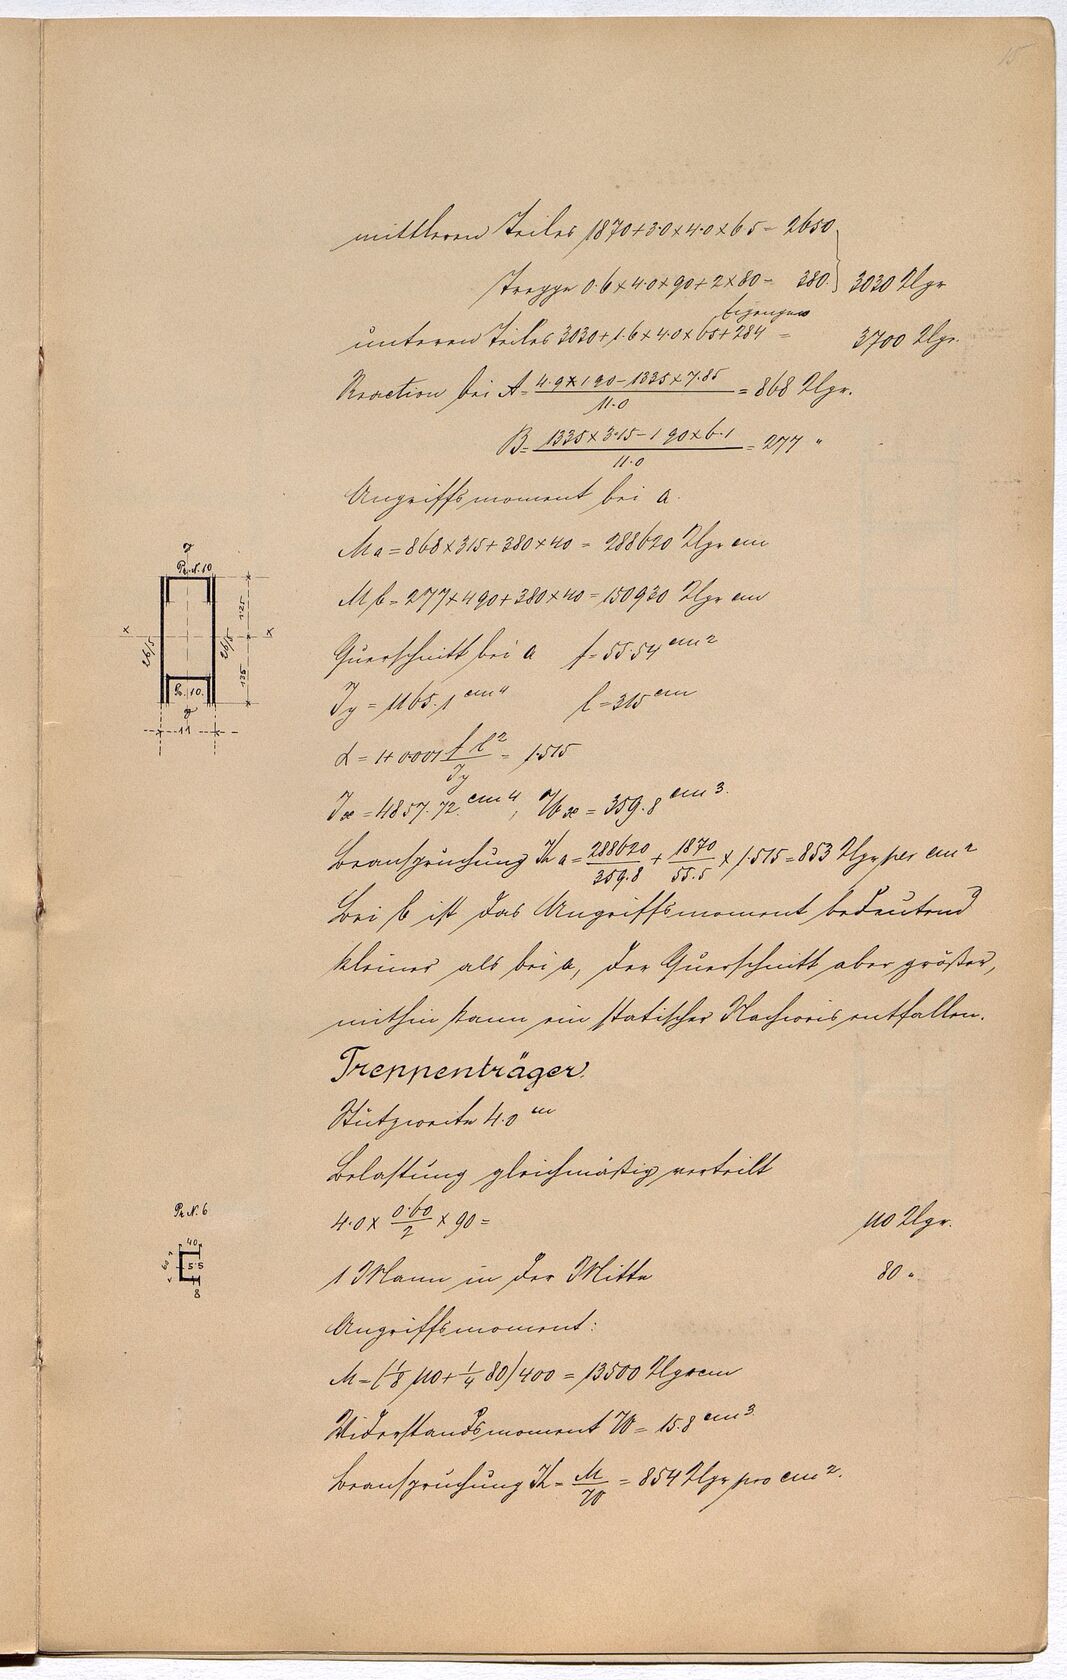 15
mittleren Teiles 1870+3·0×4·0×65= 2650
Treppe 0·6×4·0×90+2×80= 380 } 3030 Klgr
Eigengew
unteren Teiles 3030+1·6×4·0×65+284 = 3700 Klgr.
Reaction bei A= (4·9×190-1335×7·85)/11·0 = 868 Klgr.
B= (1335×3·15-190×6·1)/11·0 = 277 "
Angriffsmoment bei a.
Ma = 868×315+380×40 = 288620 Klgr cm
Mb = 277×490+380×40 = 150930 Klgr cm
Querschnitt bei a f = 55·54 cm²
Jy = 1165·1 cm⁴ l = 315 cm
α = 1+0·0001 f l²/Jy = 1·515
Jx = 4857·72 cm⁴, Wx = 359·8 cm³.
Beanspruchung Ka = 288620/359·8 + 1870/55·5 × 1·515 = 853 Klgr per cm²
Bei b ist das Angriffsmoment bedeutend
kleiner als bei a, der Querschnitt aber größer,
mithin kann ein statischer Nachweis entfallen.
Treppenträger.
Stützweite 4·0 m
Belastung gleichmäßig verteilt
4·0 × 0·60/2 × 90 = 110 Klgr.
1 Mann in der Mitte 80 "
Angriffsmoment:
M = (1/8 110 + 1/4 80) 400 = 13500 Klgrcm
Widerstandsmoment W = 15·8 cm³
Beanspruchung K = M/W = 854 Klgr pro cm².
y
Pr. N. 10
x x
26/5 26/5
135
135
Pr. 10.
y
11
Pr N. 6
40
60
5·5
8